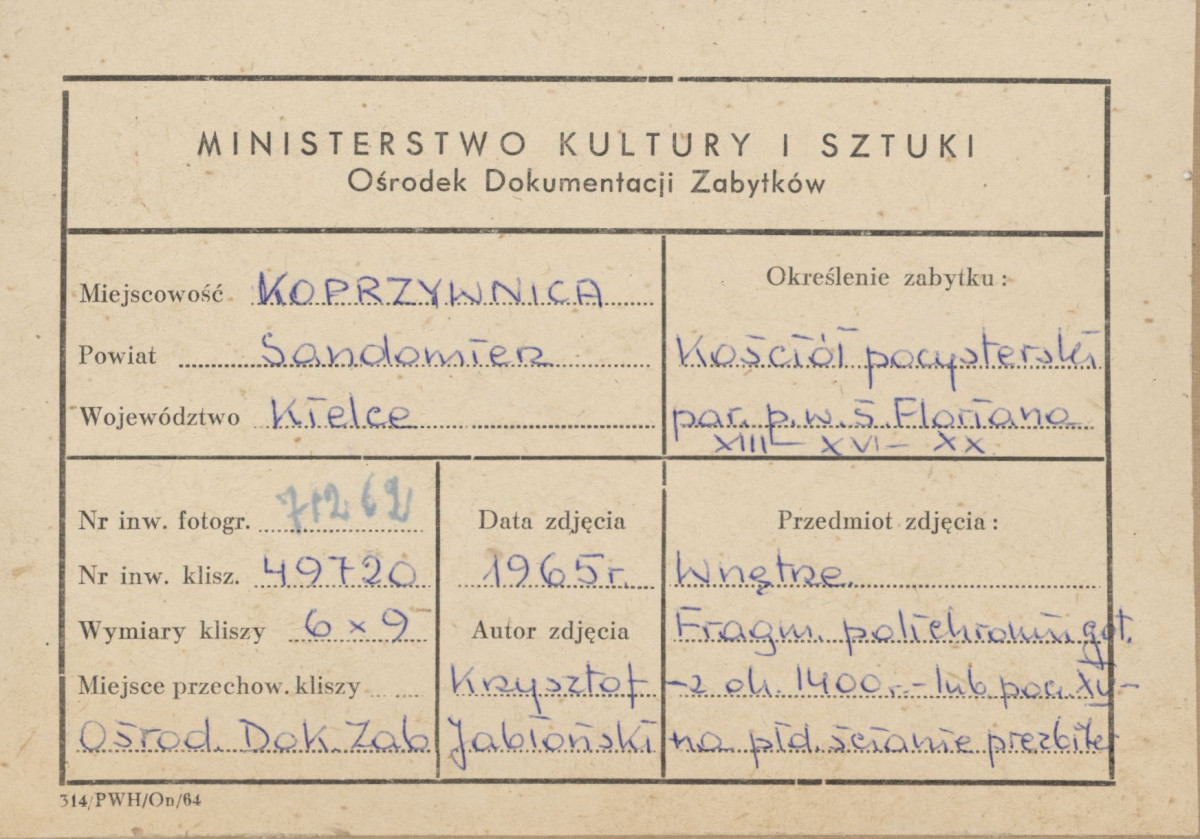 MINISTERSTWO KULTURY I SZTUKI
Ośrodek Dokumentacji Zabytków
Miejscowość KOPRZYWNICA
Powiat Sandomierz
Województwo Kielce
Określenie zabytku:
Kościół pocysterski
par. p.w. ś. Floriana
XIII – XVI – XX
Nr inw. fotogr. 71262
Nr inw. klisz. 49720
Wymiary kliszy 6 x 9
Miejsce przechow. kliszy
Ośrod. Dok. Zab
Data zdjęcia
1965 r.
Autor zdjęcia
Krzysztof
Jabłoński
Przedmiot zdjęcia:
Wnętrze.
Fragm. polichromii got.
- z ok. 1400 r. - lub pocz. XV -
na płd. ścianie prezbiter
314/PWH/On/64